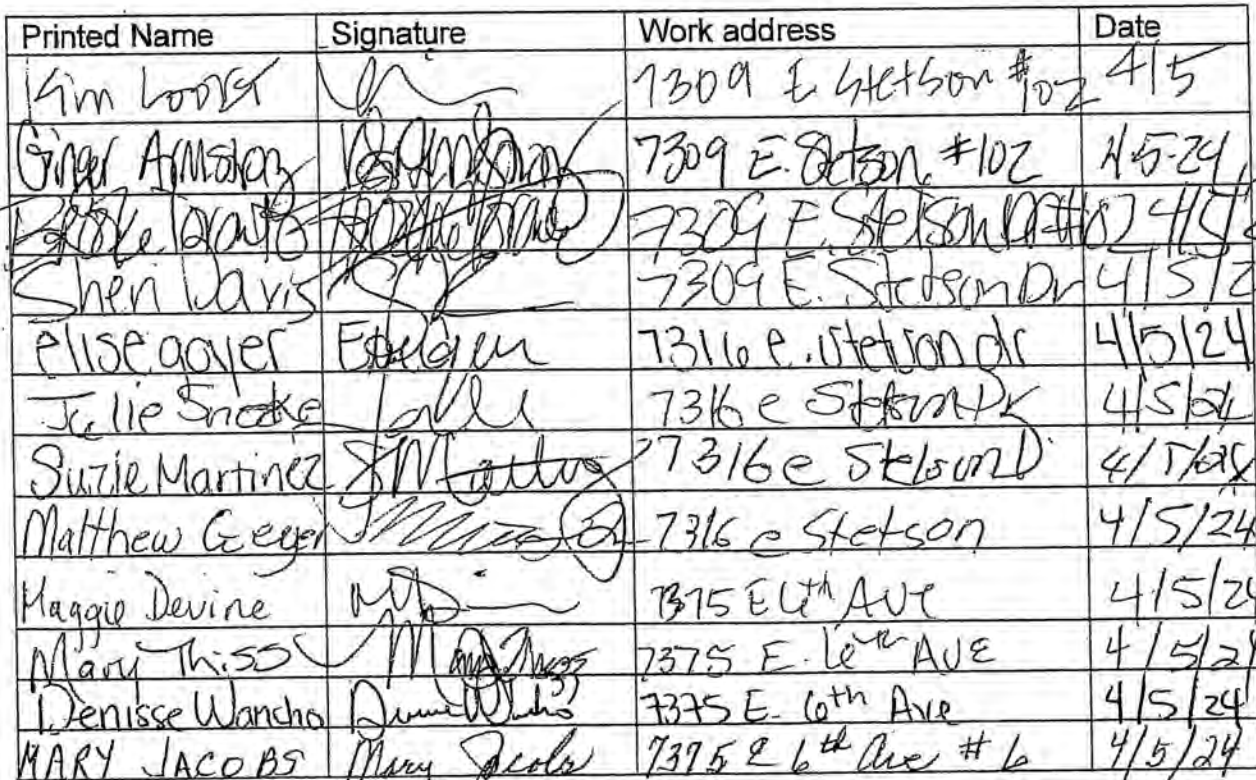 Printed Name Signature Work address Date
Kim 7309 E Stetson #102 4/5
Ginger 7309 E. Stetson #102 4-5-24
7309 E. Stetson Dr #102 4/5/2
Sheri Davis 7309 E. Stetson Dr 4/5/2
elise goyer 7316 e. stetson dr 4/5/24
Julie 7316 e Stetson Dr 4/5/24
Suzie Martinez SMartinez 7316 e Stetson D 4/5/24
Matthew Geeyer 7316 e Stetson 4/5/24
Maggie Devine 7375 E 6th AVE 4/5/24
Mary Thiss Mary Thiss 7375 E. 6TH AVE 4/5/24
Denisse Wancho 7375 E. 6th Ave 4/5/24
MARY JACOBS Mary Jacobs 7375 E 6th Ave #6 4/5/24